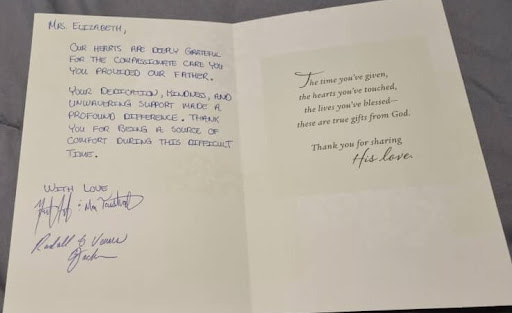 MRS. ELIZABETH,
OUR HEARTS ARE DEEPLY GRATEFUL
FOR THE COMPASSIONATE CARE YOU
YOU PROVIDED OUR FATHER.
YOUR DEDICATION, KINDNESS, AND
UNWAVERING SUPPORT MADE A
PROFOUND DIFFERENCE. THANK
YOU FOR BEING A SOURCE OF
COMFORT DURING THIS DIFFICULT
TIME.
WITH LOVE
The time you've given,
the hearts you've touched,
the lives you've blessed—
these are true gifts from God.
Thank you for sharing
His love.